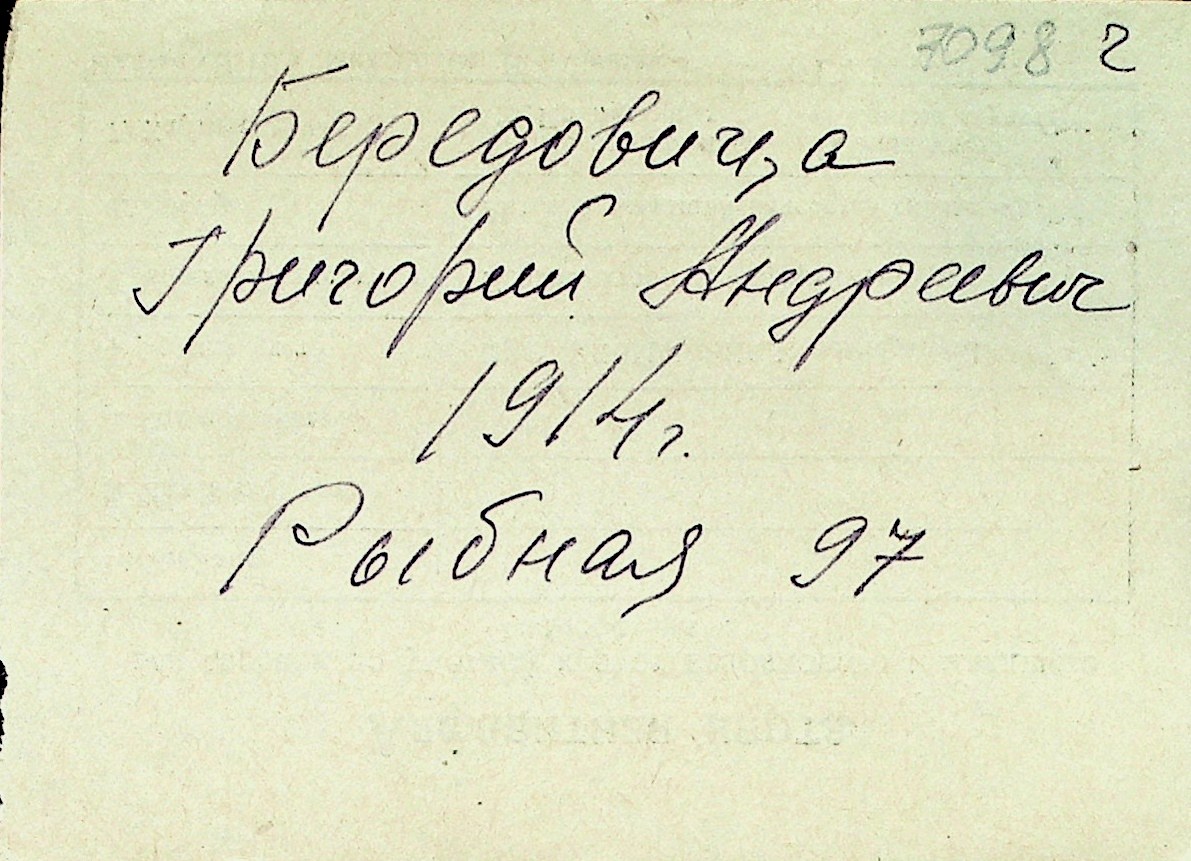 7098 г
Бередовица
Григорий Андреевич
1914г.
Рыбная 97